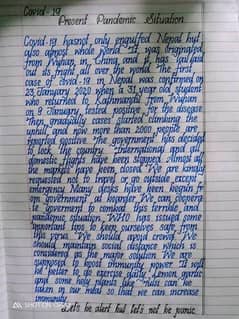 Covid-19
Present Pandemic Situation
Covid-19 hasnot only engulfed Nepal but
also almost whole World. It was originated
from Wuhan, in China, and it has laid
out its fright all over the world. The first
case of covid-19 in Nepal was confirmed on
23 January 2020 when a 31 year old student
who returned to Kathmandu from Wuhan
on 9 January, tested positive for the disease
Then gradually cases started climbing the
uphill and now more than 2000 people are
reported positive. The government has decided
to lock the country. International and all
domestic flights have been stopped. Almost all
the markets have been closed. We are kindly
requested not to imply or go outside except
emergency. Many desks have been begun fr-
om government at boarder. We can cooperate
to government to combat this terrible and
pandemic situation. WHO has issued some
important tips to keep ourselves safe from
this virus. We should avoid crowd. We
should maintain social distance which is
considered as the major solution. We are
supposed to boost immunity power. It will
be better to do exercise daily. Lemon, garlic
and some holy plants like Tulsi can be
taken in our meal so that we can increase
immunity.
Let's be alert but let's not be panic.
SHOT ON